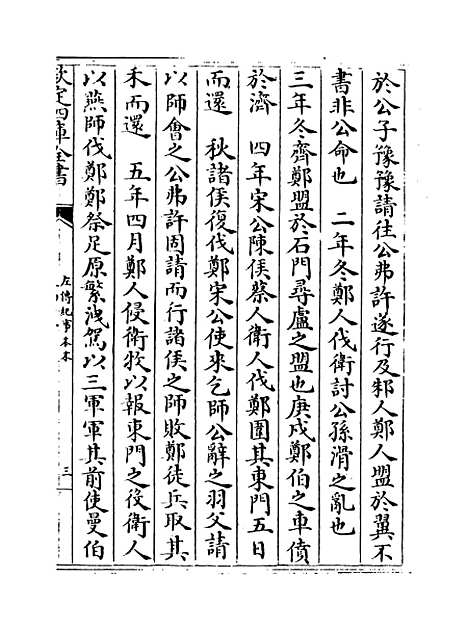 於公子豫豫請往公弗許遂行及邾人鄭人盟於翼不
書非公命也　二年冬鄭人伐衛討公孫滑之亂也
三年冬齊鄭盟於石門尋盧之盟也庚戌鄭伯之車僨
於濟　四年宋公陳侯蔡人衛人伐鄭圍其東門五日
而還　秋諸侯復伐鄭宋公使来乞師公辭之羽父請
以師會之公弗許固請而行諸侯之師敗鄭徒兵取其
禾而還　五年四月鄭人侵衛牧以報東門之役衛人
以燕師伐鄭鄭祭足原繁洩駕以三軍軍其前使曼伯
欽定四庫全書
左傳紀事本末
三